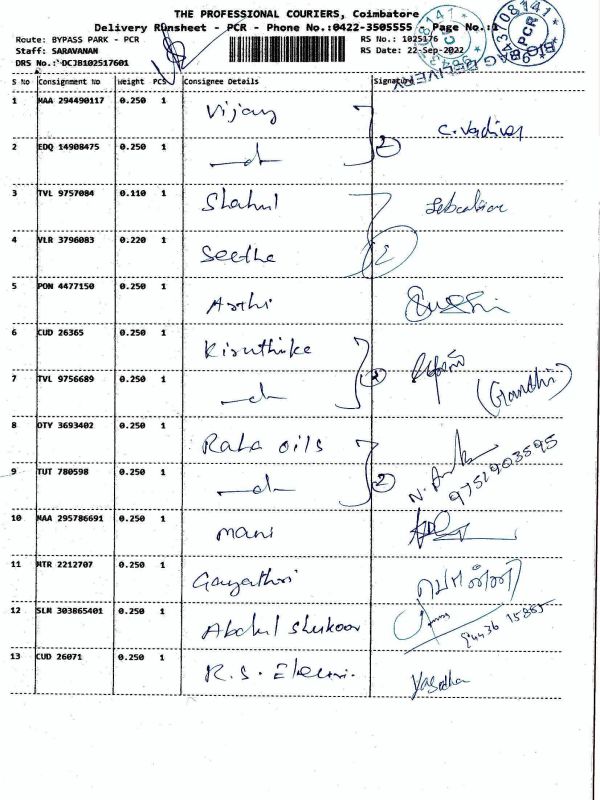 THE PROFESSIONAL COURIERS, Coimbatore
Delivery Runsheet - PCR - Phone No.:0422-3505555 Page No.:1
Route: BYPASS PARK - PCR RS No.: 1025176
Staff: SARAVANAN RS Date: 22-Sep-2022
DRS No.: DCJB102517601
S No Consignment No Weight PCS Consignee Details Signature
1 MAA 294490117 0.250 1 Vijay C. Vadivel
2 EDQ 14908475 0.250 1 2
3 TVL 9757084 0.110 1 Shahul
4 VLR 3796083 0.220 1 Seetha 2
5 PON 4477150 0.250 1 Arthi
6 CUD 26365 0.250 1 Kiruthike
7 TVL 9756689 0.250 1 2 (Gandhi)
8 OTY 3693402 0.250 1 Raha oils
9 TUT 780598 0.250 1 2 9751903595
10 MAA 295786691 0.250 1 mani
11 MTR 2212707 0.250 1 Gayathri
12 SLM 303865401 0.250 1 Abdul Shukoor
13 CUD 26071 0.250 1 R.S. Yasodha